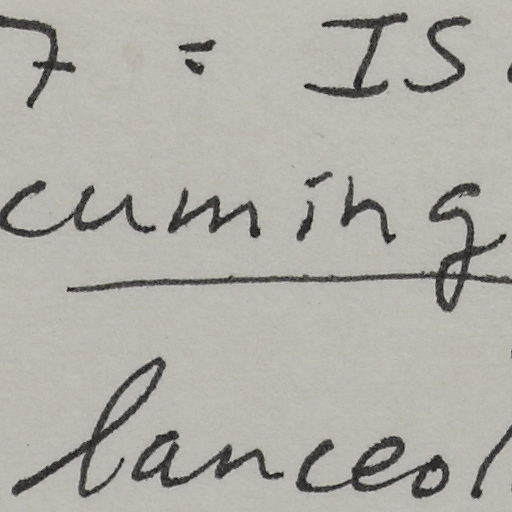 7 = IS
cuming
lanceol